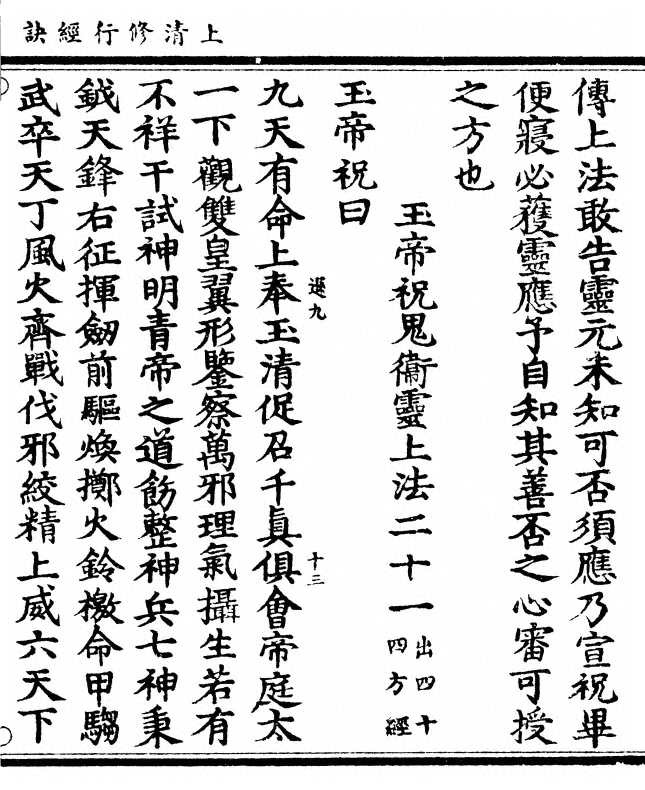 上清修行經訣
傳上法敢告靈元未知可否須應乃宣祝畢
便寢必蒦靈應予自知其善否之心審可授
之方也
玉帝祝鬼衞靈上法二十一出四十四方經
玉帝祝曰
九天有命上奉玉清促召千眞俱會帝庭太
遜九
十三
一下觀雙皇翼形鑒察萬邪理氣攝生若有
不祥干試神明青帝之道飭整神兵七神秉
鉞天鋒右征揮劒前驅煥擲火鈴檄命甲騶
武卒天丁風火齊戰伐邪絞精上威六天下